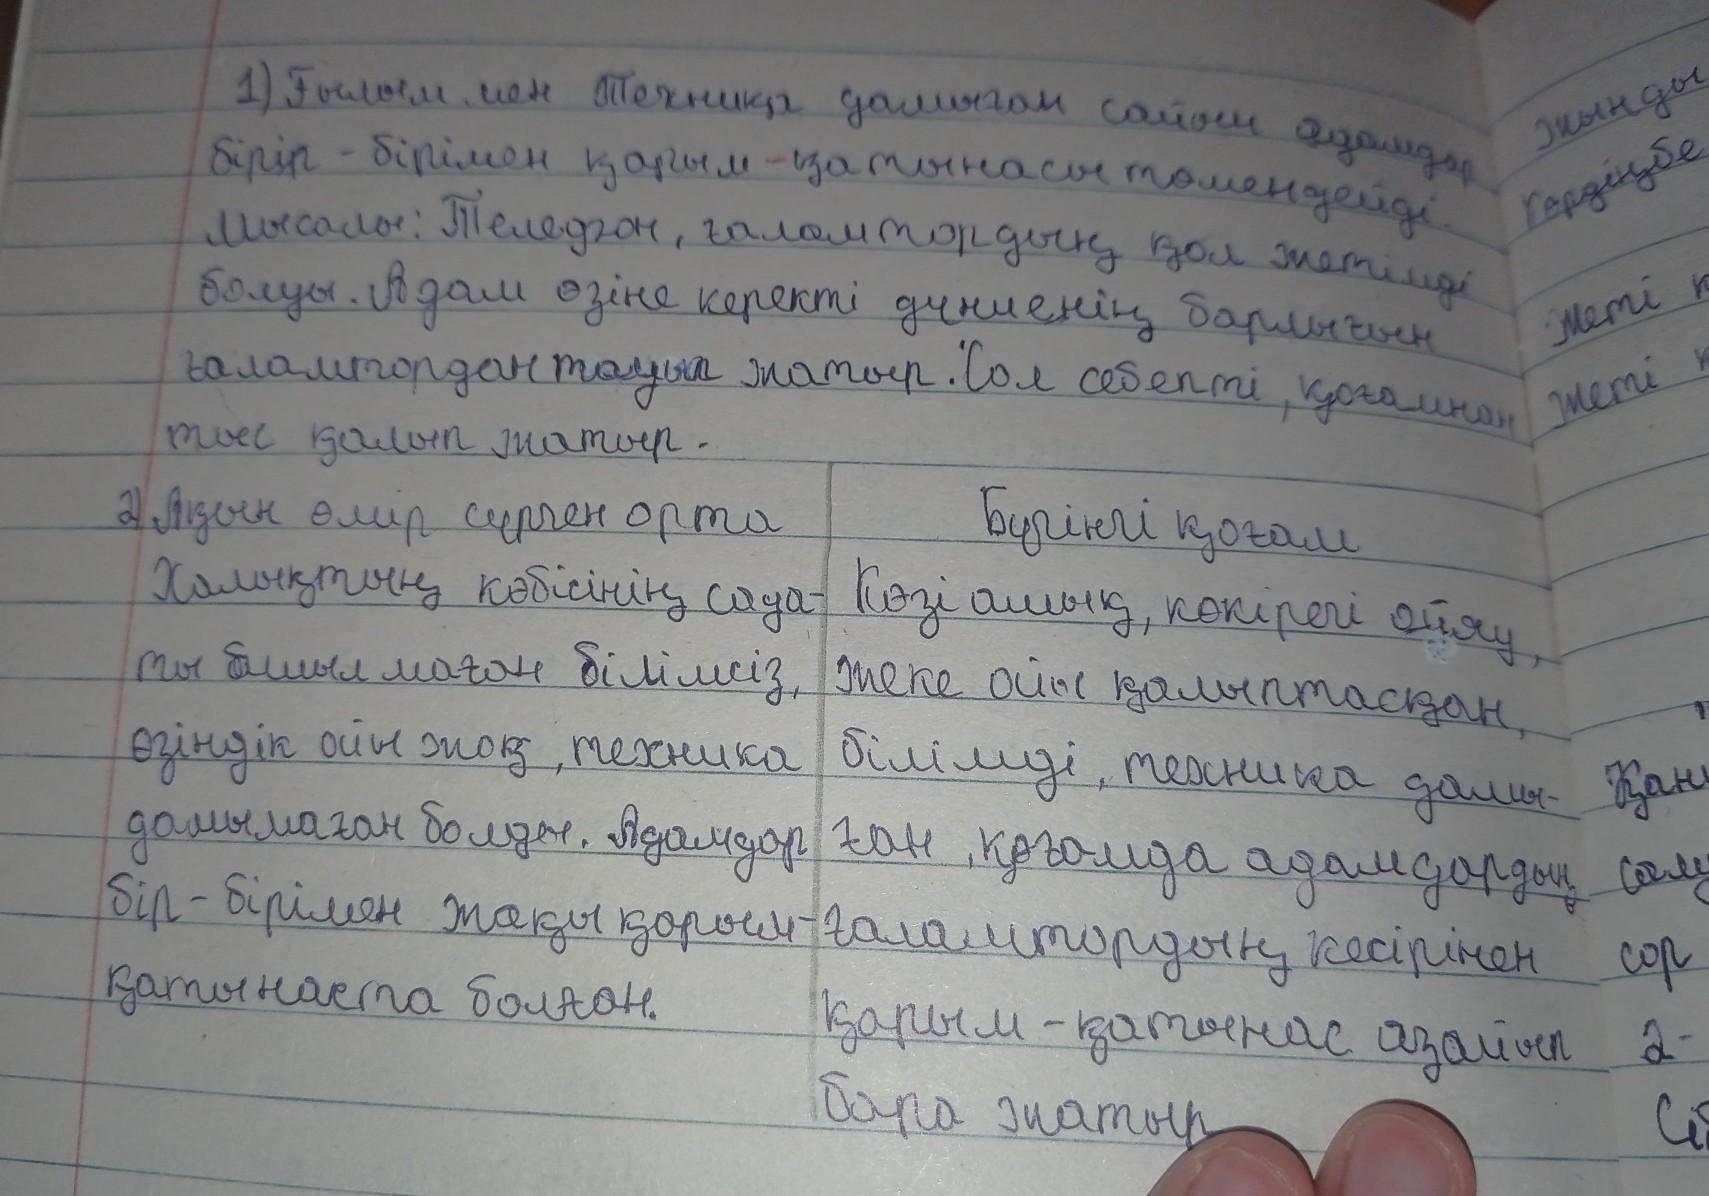 1) Ғылым мен Техника дамыған сайын адамдар
бірін-бірімен қарым-қатынасы төмендейді.
Мысалы: Телефон, ғаламтордың қол жетімді
болуы. Адам өзіне керекті дүниенің барлығын
ғаламтордан тауып жатыр. Сол себепті, қоғамнан
тыс қалып жатыр.
2) Ақын өмір сүрген орта
Халықтың көбісінің сауа-
ты ашылмаған білімсіз,
өзіндік ойы жоқ, техника
дамымаған болды. Адамдар
бір-бірімен жақы қарым-
қатынаста болған.
Бүгінгі қоғам
Көзі ашық, көкірегі ояу,
жеке ойы қалыптасқан,
білімді, техника дамы-
ған, қоғамда адамдардың
ғаламтордың кесірінен
қарым-қатынас азайып
бара жатыр
жынды
жеті
жеті
сор
2-